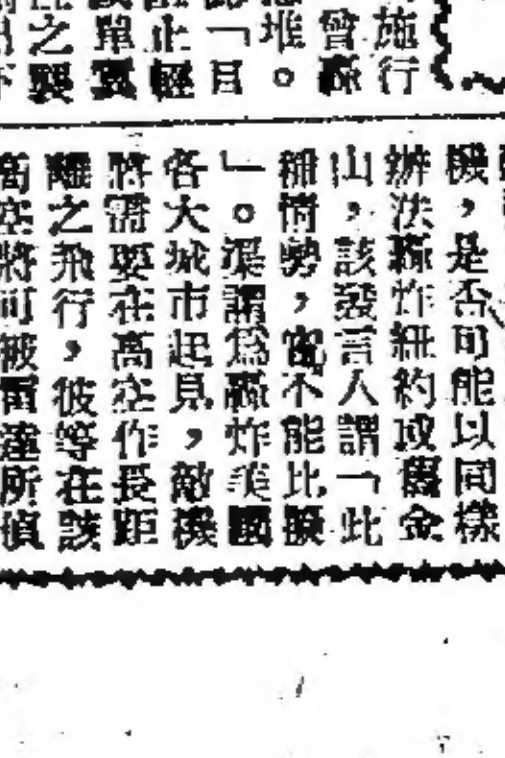 施行
曾轟
堆。
「目
止輕
單翼
之襲
機,是否可能以同樣
辦法轟炸紐約或舊金
山,該發言人謂「此
種情勢,實不能比擬
」。渠謂爲轟炸美國
各大城市起見,敵機
將需要在高空作長距
離之飛行,彼等在該
高空將可被雷達所偵